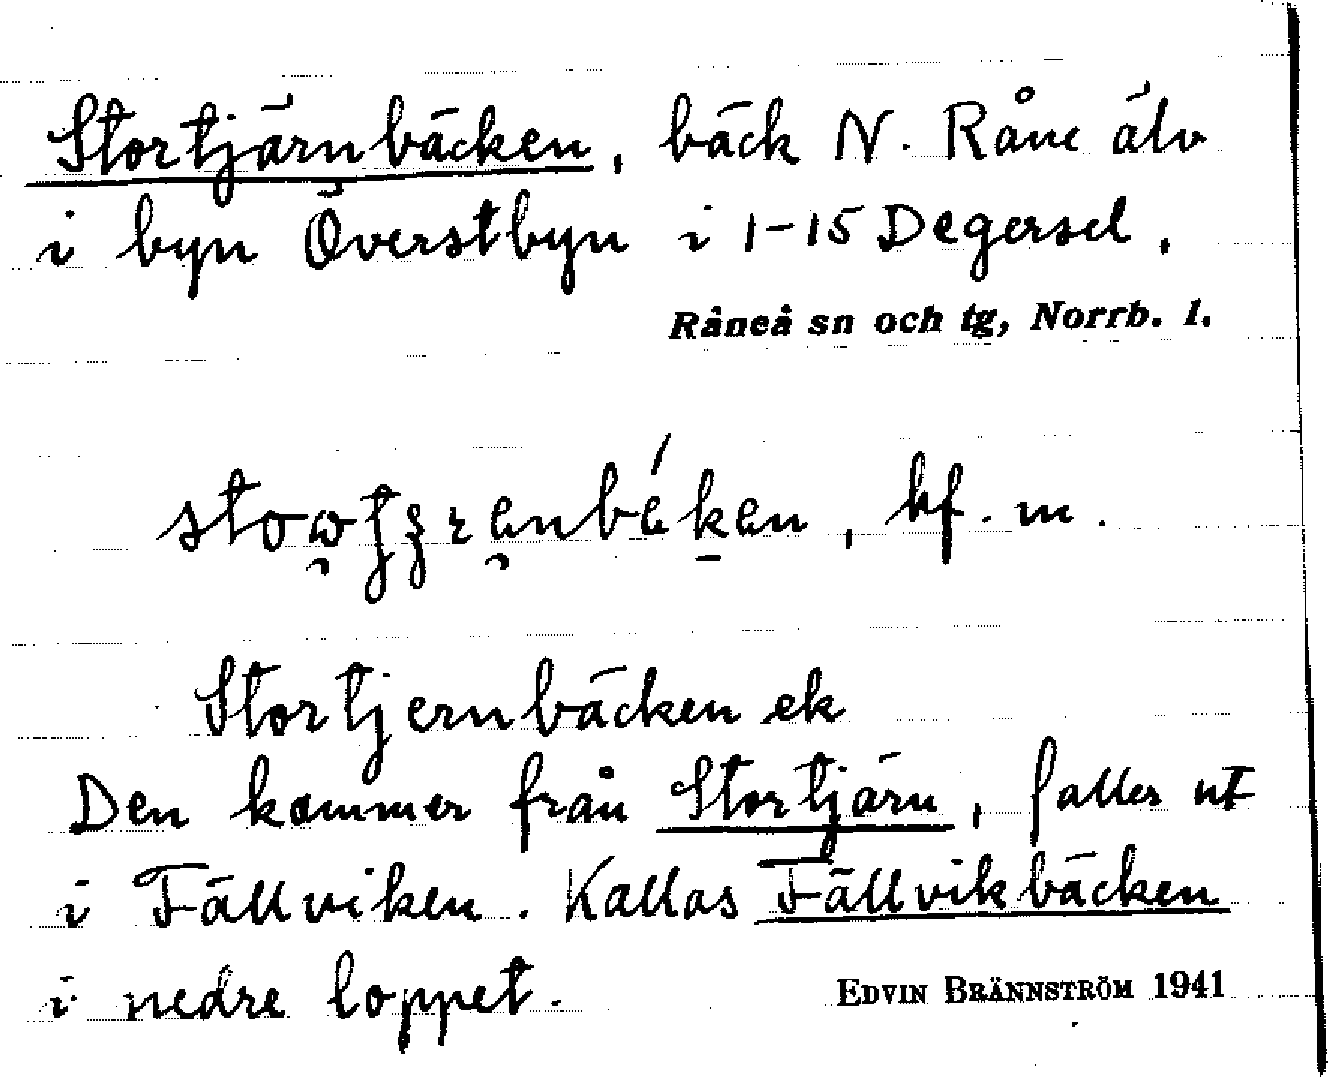 Stortjärnbäcken, bäck N. Råne älv
i byn Överstbyn i 1-15 Degersel.
Råneå sn och tg, Norrb. l.
, bf. m.
Stortjernbäcken ek
Den kommer från Stortjärn, faller ut
i Fällviken. Kallas Fällvikbäcken
i nedre loppet.
EDVIN BRÄNNSTRÖM 1941